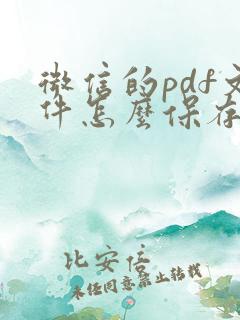 微信的pdf文
件怎麽保存
比安信
未经同意禁止转载